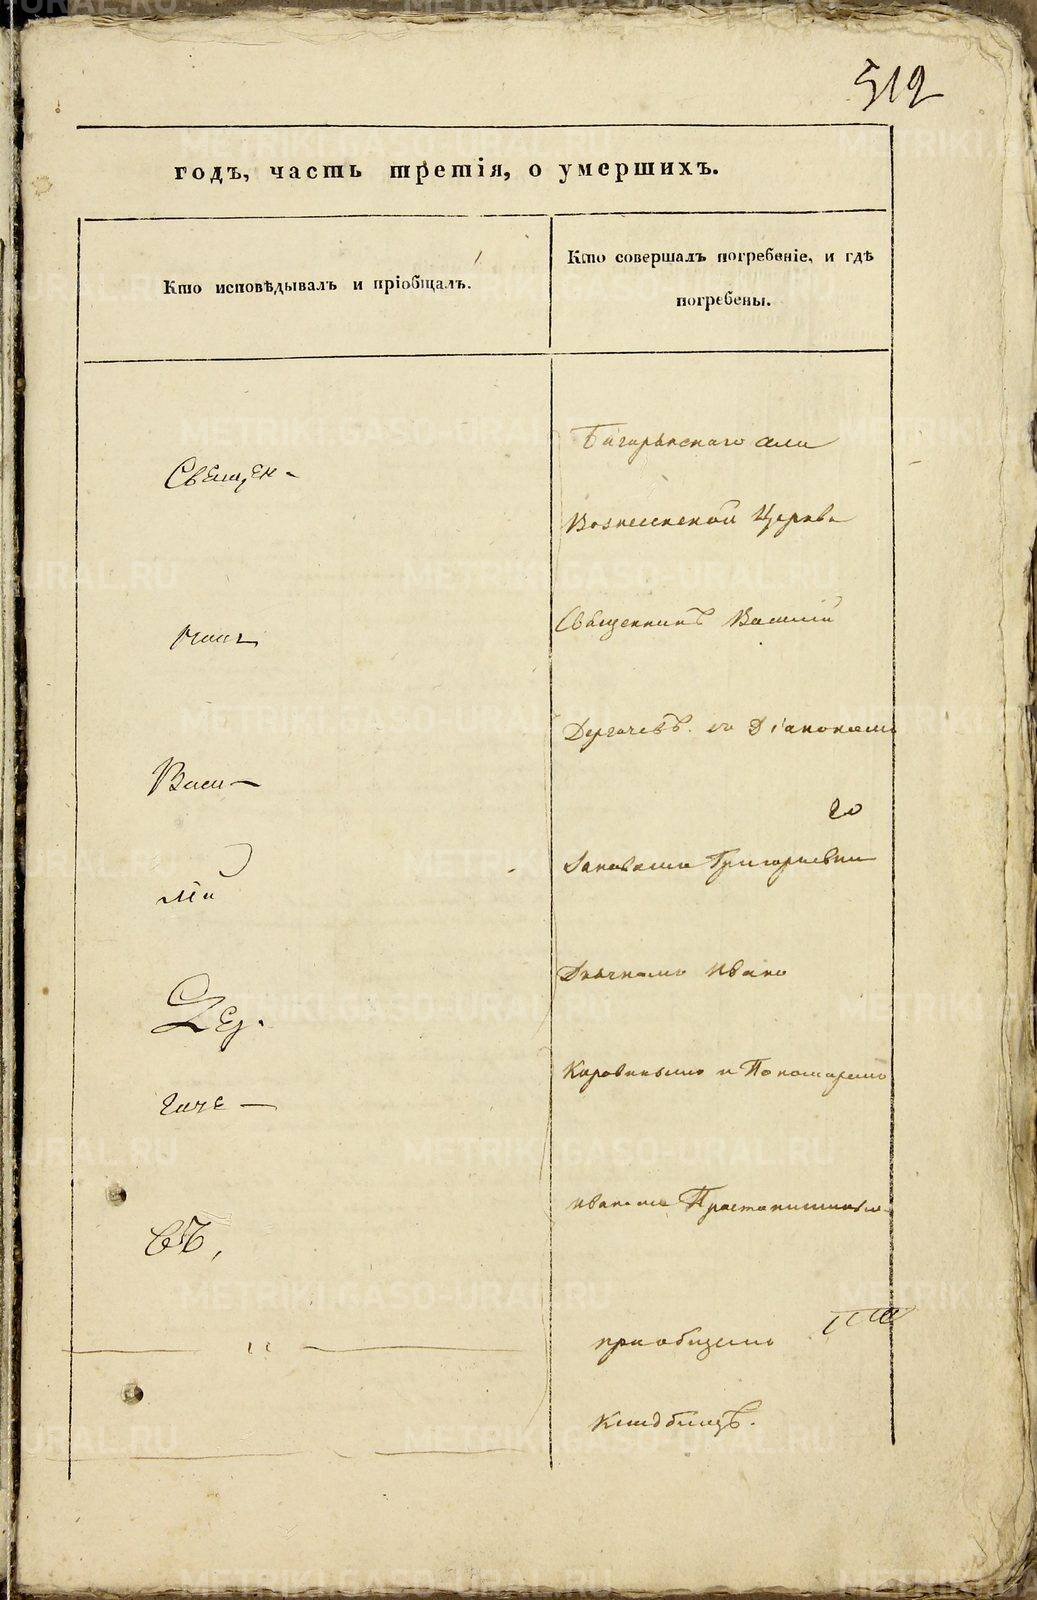 512
годъ, часть третія, о умершихъ.
Кто исповѣдывалъ и пріобщалъ.
Кто совершалъ погребеніе, и гдѣ
погребены.
Свящ,ен-
никъ
Васи-
лій
Дер.
гаче-
въ,
Багарякскаго села
Вознесенской Церкви
Священникъ Василій
Дергачевъ. со Діакономъ
Григорьевы
го
Дьячкомъ Ивано
и Пономаремъ
Иваномъ
приобщемъ
METRIKI.GASO-URAL.RU